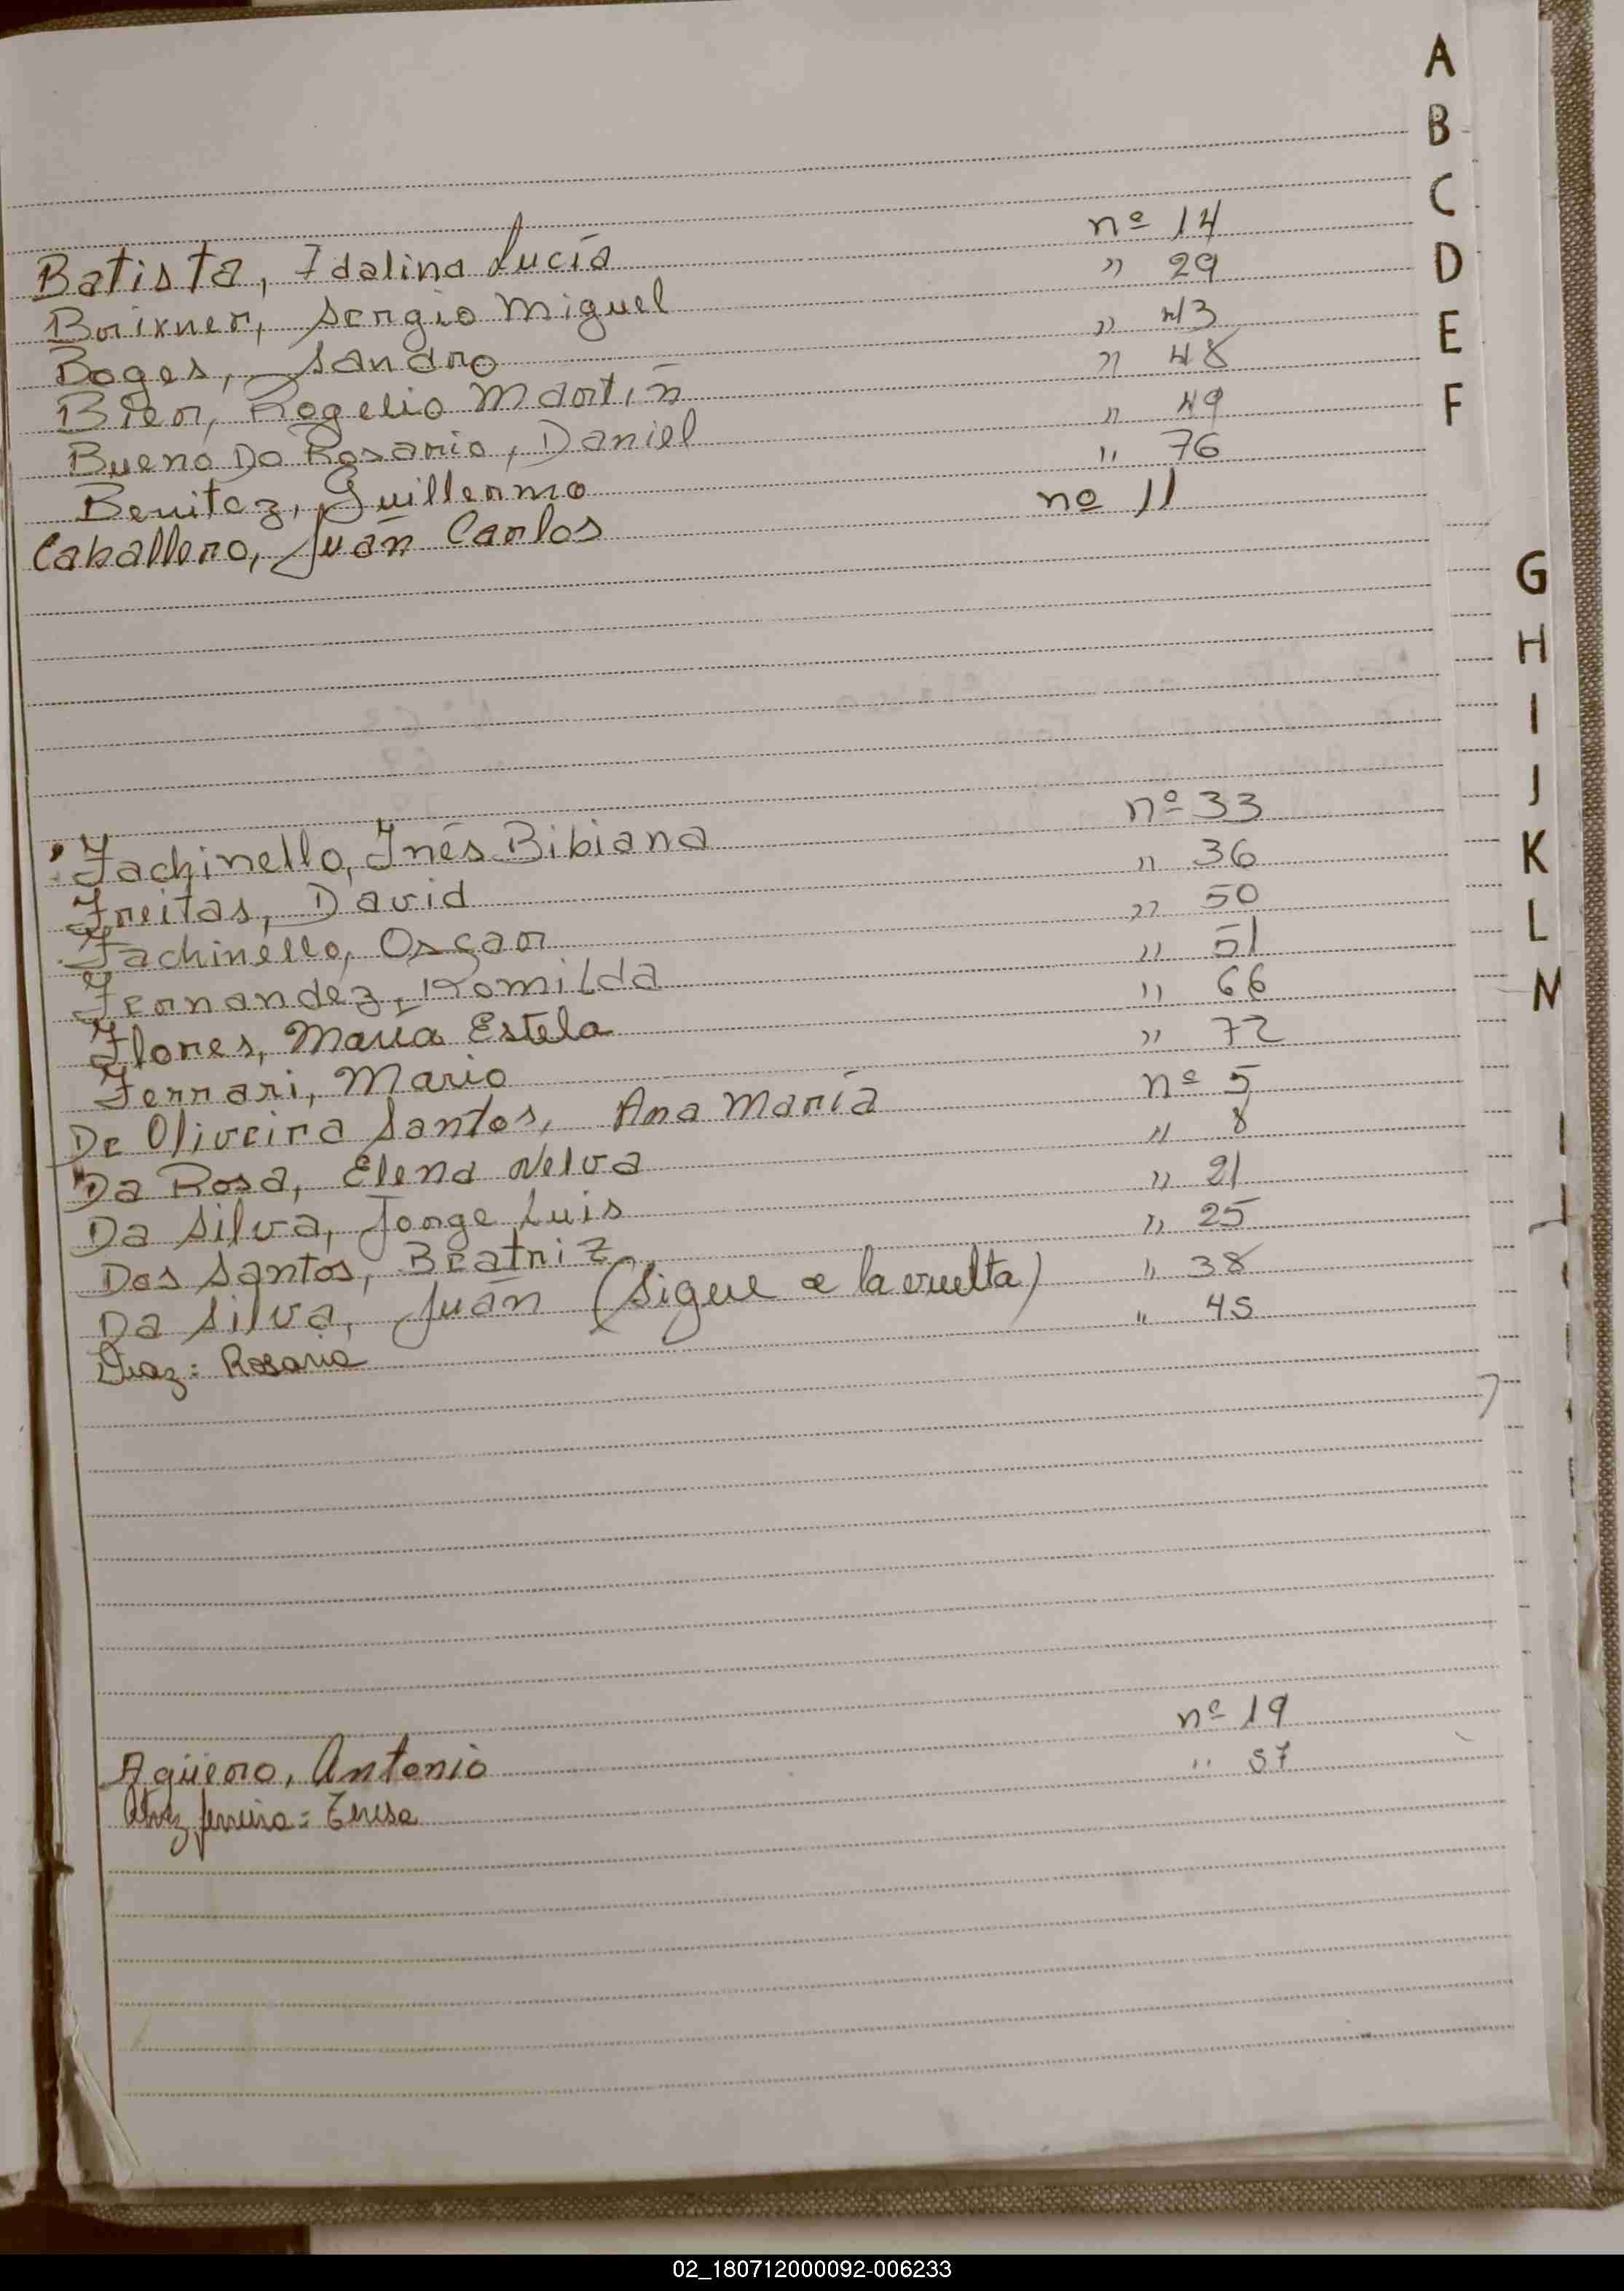 Batista, Idalina Lucía nº 14
Brixner, Sergio Miguel " 29
Boges, Sandro " 43
Bier, Rogelio Martín " 48
Bueno Do Rosario, Daniel " 49
Benitez, Guillermo " 76
Caballero, Juan Carlos nº 11
Fachinello, Inés Bibiana nº 33
Freitas, David " 36
Fachinello, Oscar " 50
Fernandez, Romilda " 51
Flores, María Estela " 66
Ferrari, Mario " 72
De Oliveira Santos, Ana María nº 5
Da Rosa, Elena Nelva " 8
Da Silva, Jorge Luis " 21
Dos Santos, Beatriz " 25
Da Silva, Juan (Sigue a la vuelta) " 38
Diaz: Rosario " 45
Agüero, Antonio nº 19
ferreira = Teresa " 57
A
B
C
D
E
F
G
H
I
J
K
L
M
02_180712000092-006233